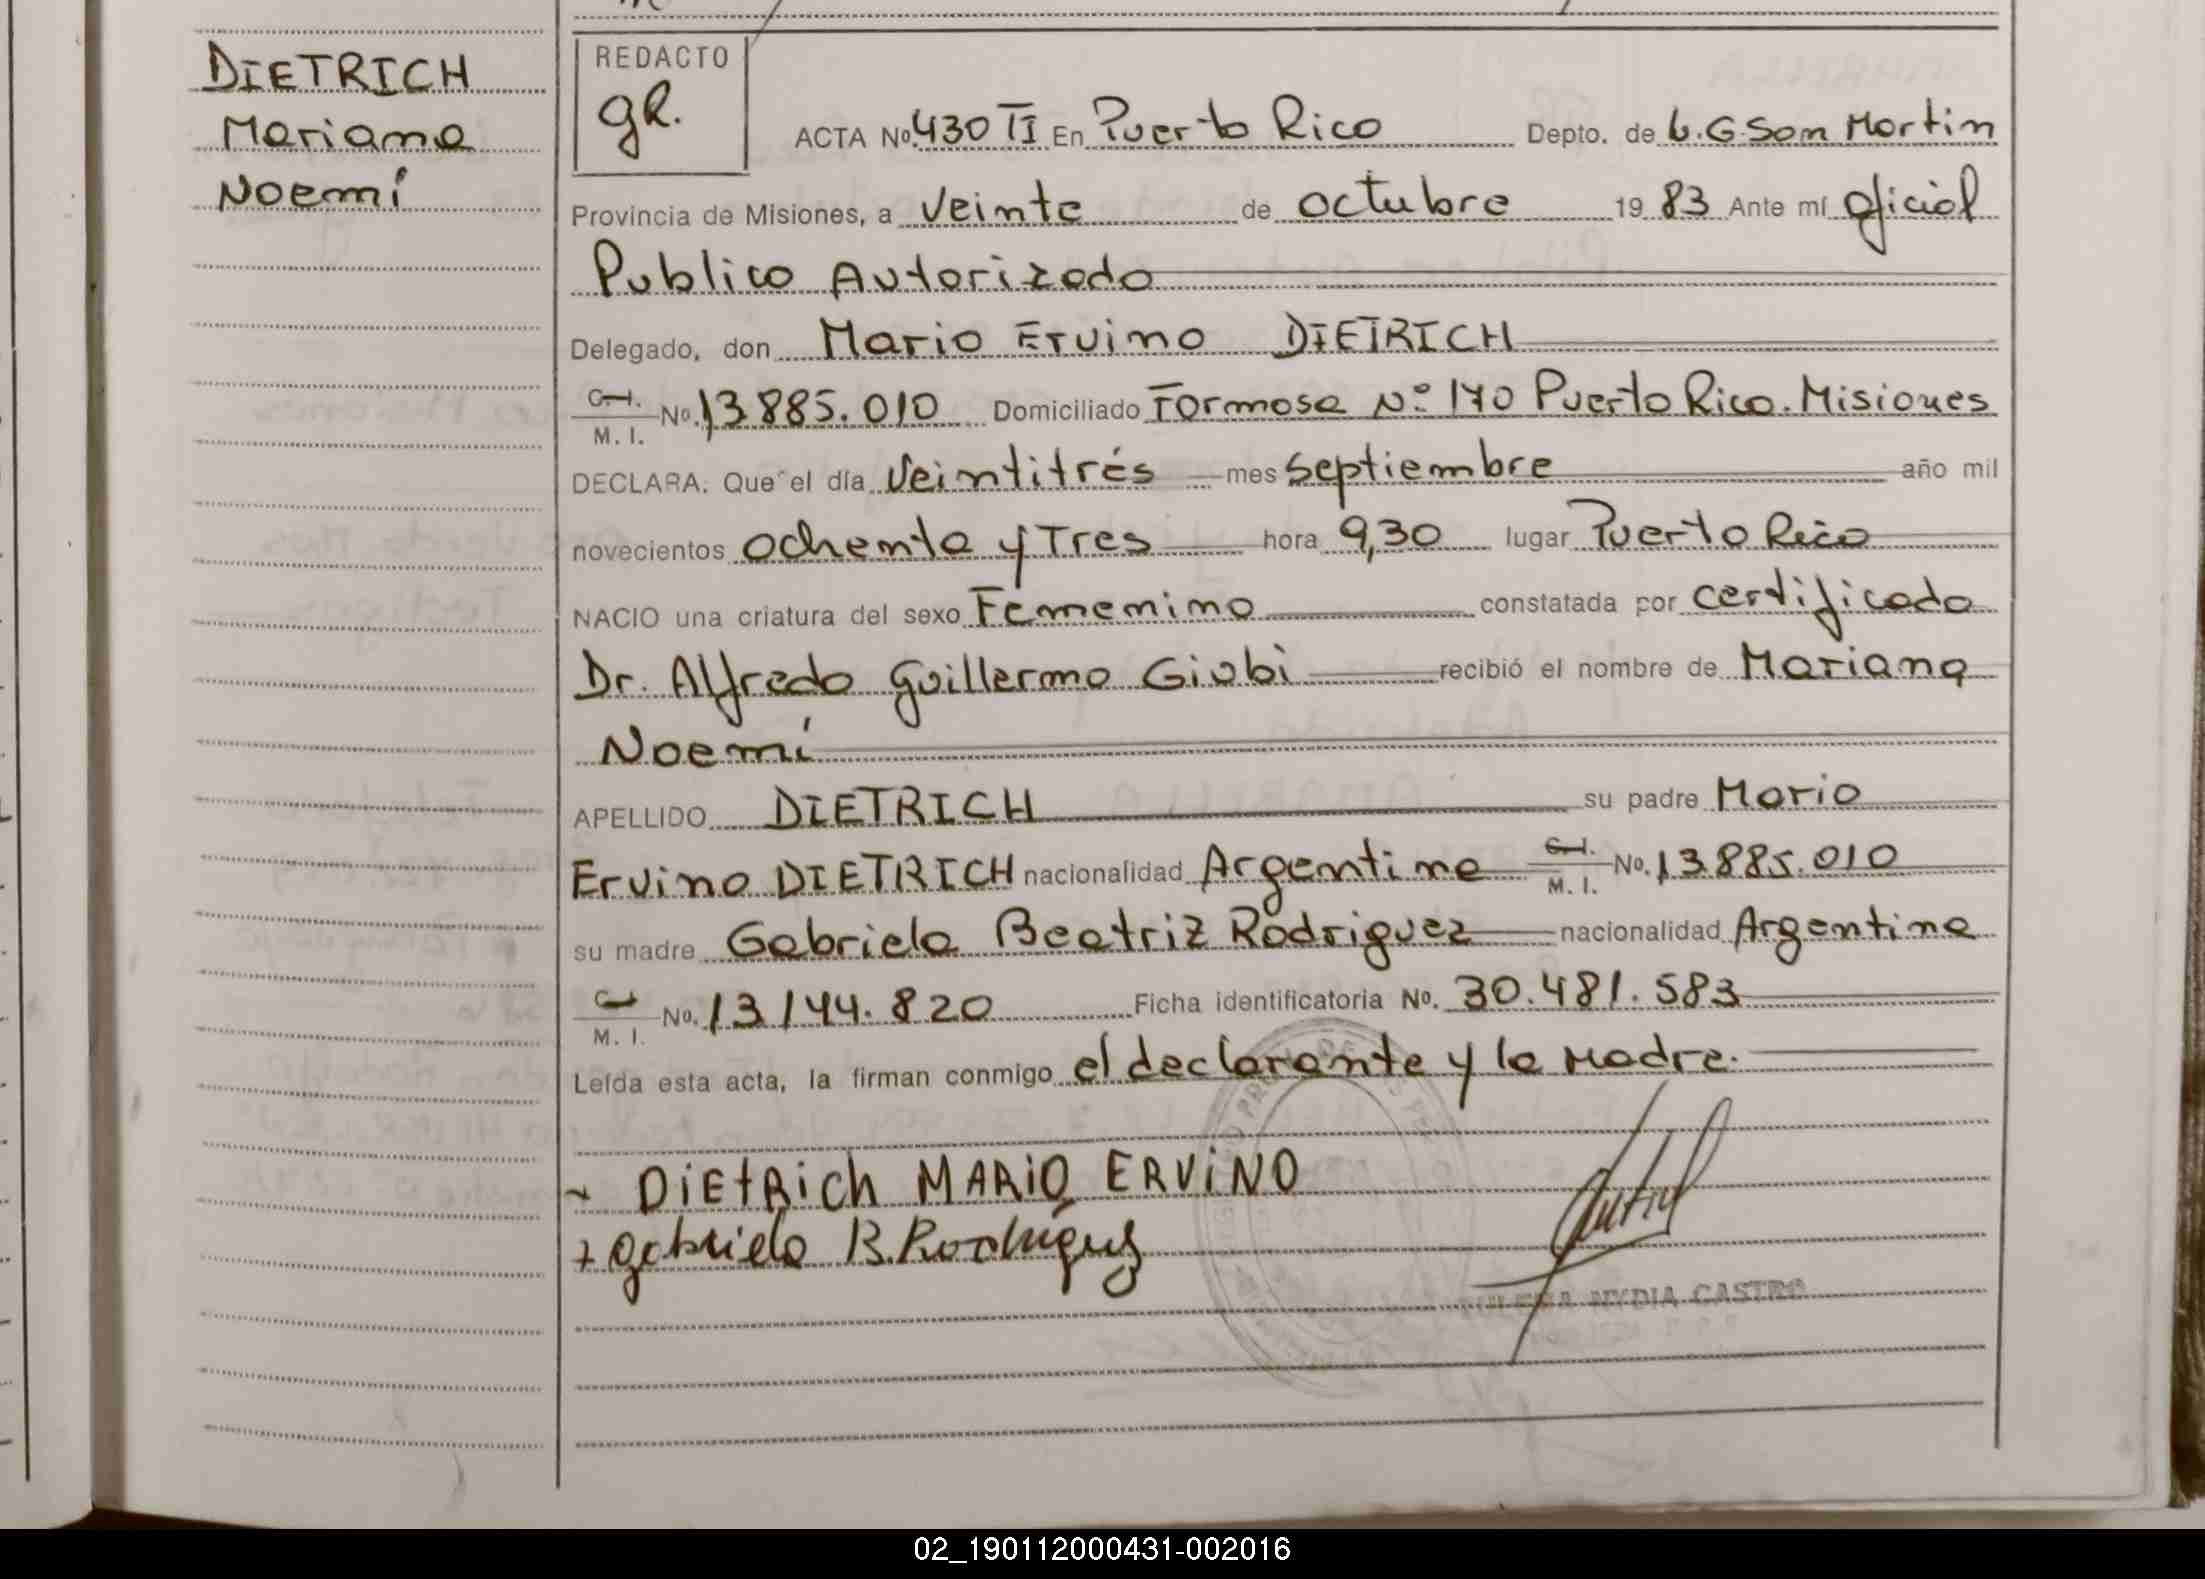 DIETRICH
Mariana
Noemí
REDACTO
gR.
ACTA No. 430 TI En Puerto Rico Depto. de L.G.San Martin
Provincia de Misiones, a veinte de octubre 19 83 Ante mí oficial
Publico Autorizado
Delegado, don Mario Ervino DIETRICH
C.I. M. I. No. 13885.010 Domiciliado Formosa Nº 170 Puerto Rico. Misiones
DECLARA: Que el día Veintitrés mes septiembre año mil
novecientos ochenta y Tres hora 9,30 lugar Puerto Rico
NACIO una criatura del sexo Femenino constatada por certificado
Dr. Alfredo Guillermo Giubi recibió el nombre de Mariana
Noemí
APELLIDO DIETRICH su padre Mario
Ervino DIETRICH nacionalidad Argentina C.I. M. I. No. 13885.010
su madre Gabriela Beatriz Rodriguez nacionalidad Argentina
C.I. M. I. No. 13144.820 Ficha identificatoria No. 30.481.583
Leída esta acta, la firman conmigo el declarante y la Madre.
DiEtRich MARiO ERViNO
+ gabriela B. Rodriguez
NYDIA CASTRO
02_190112000431-002016